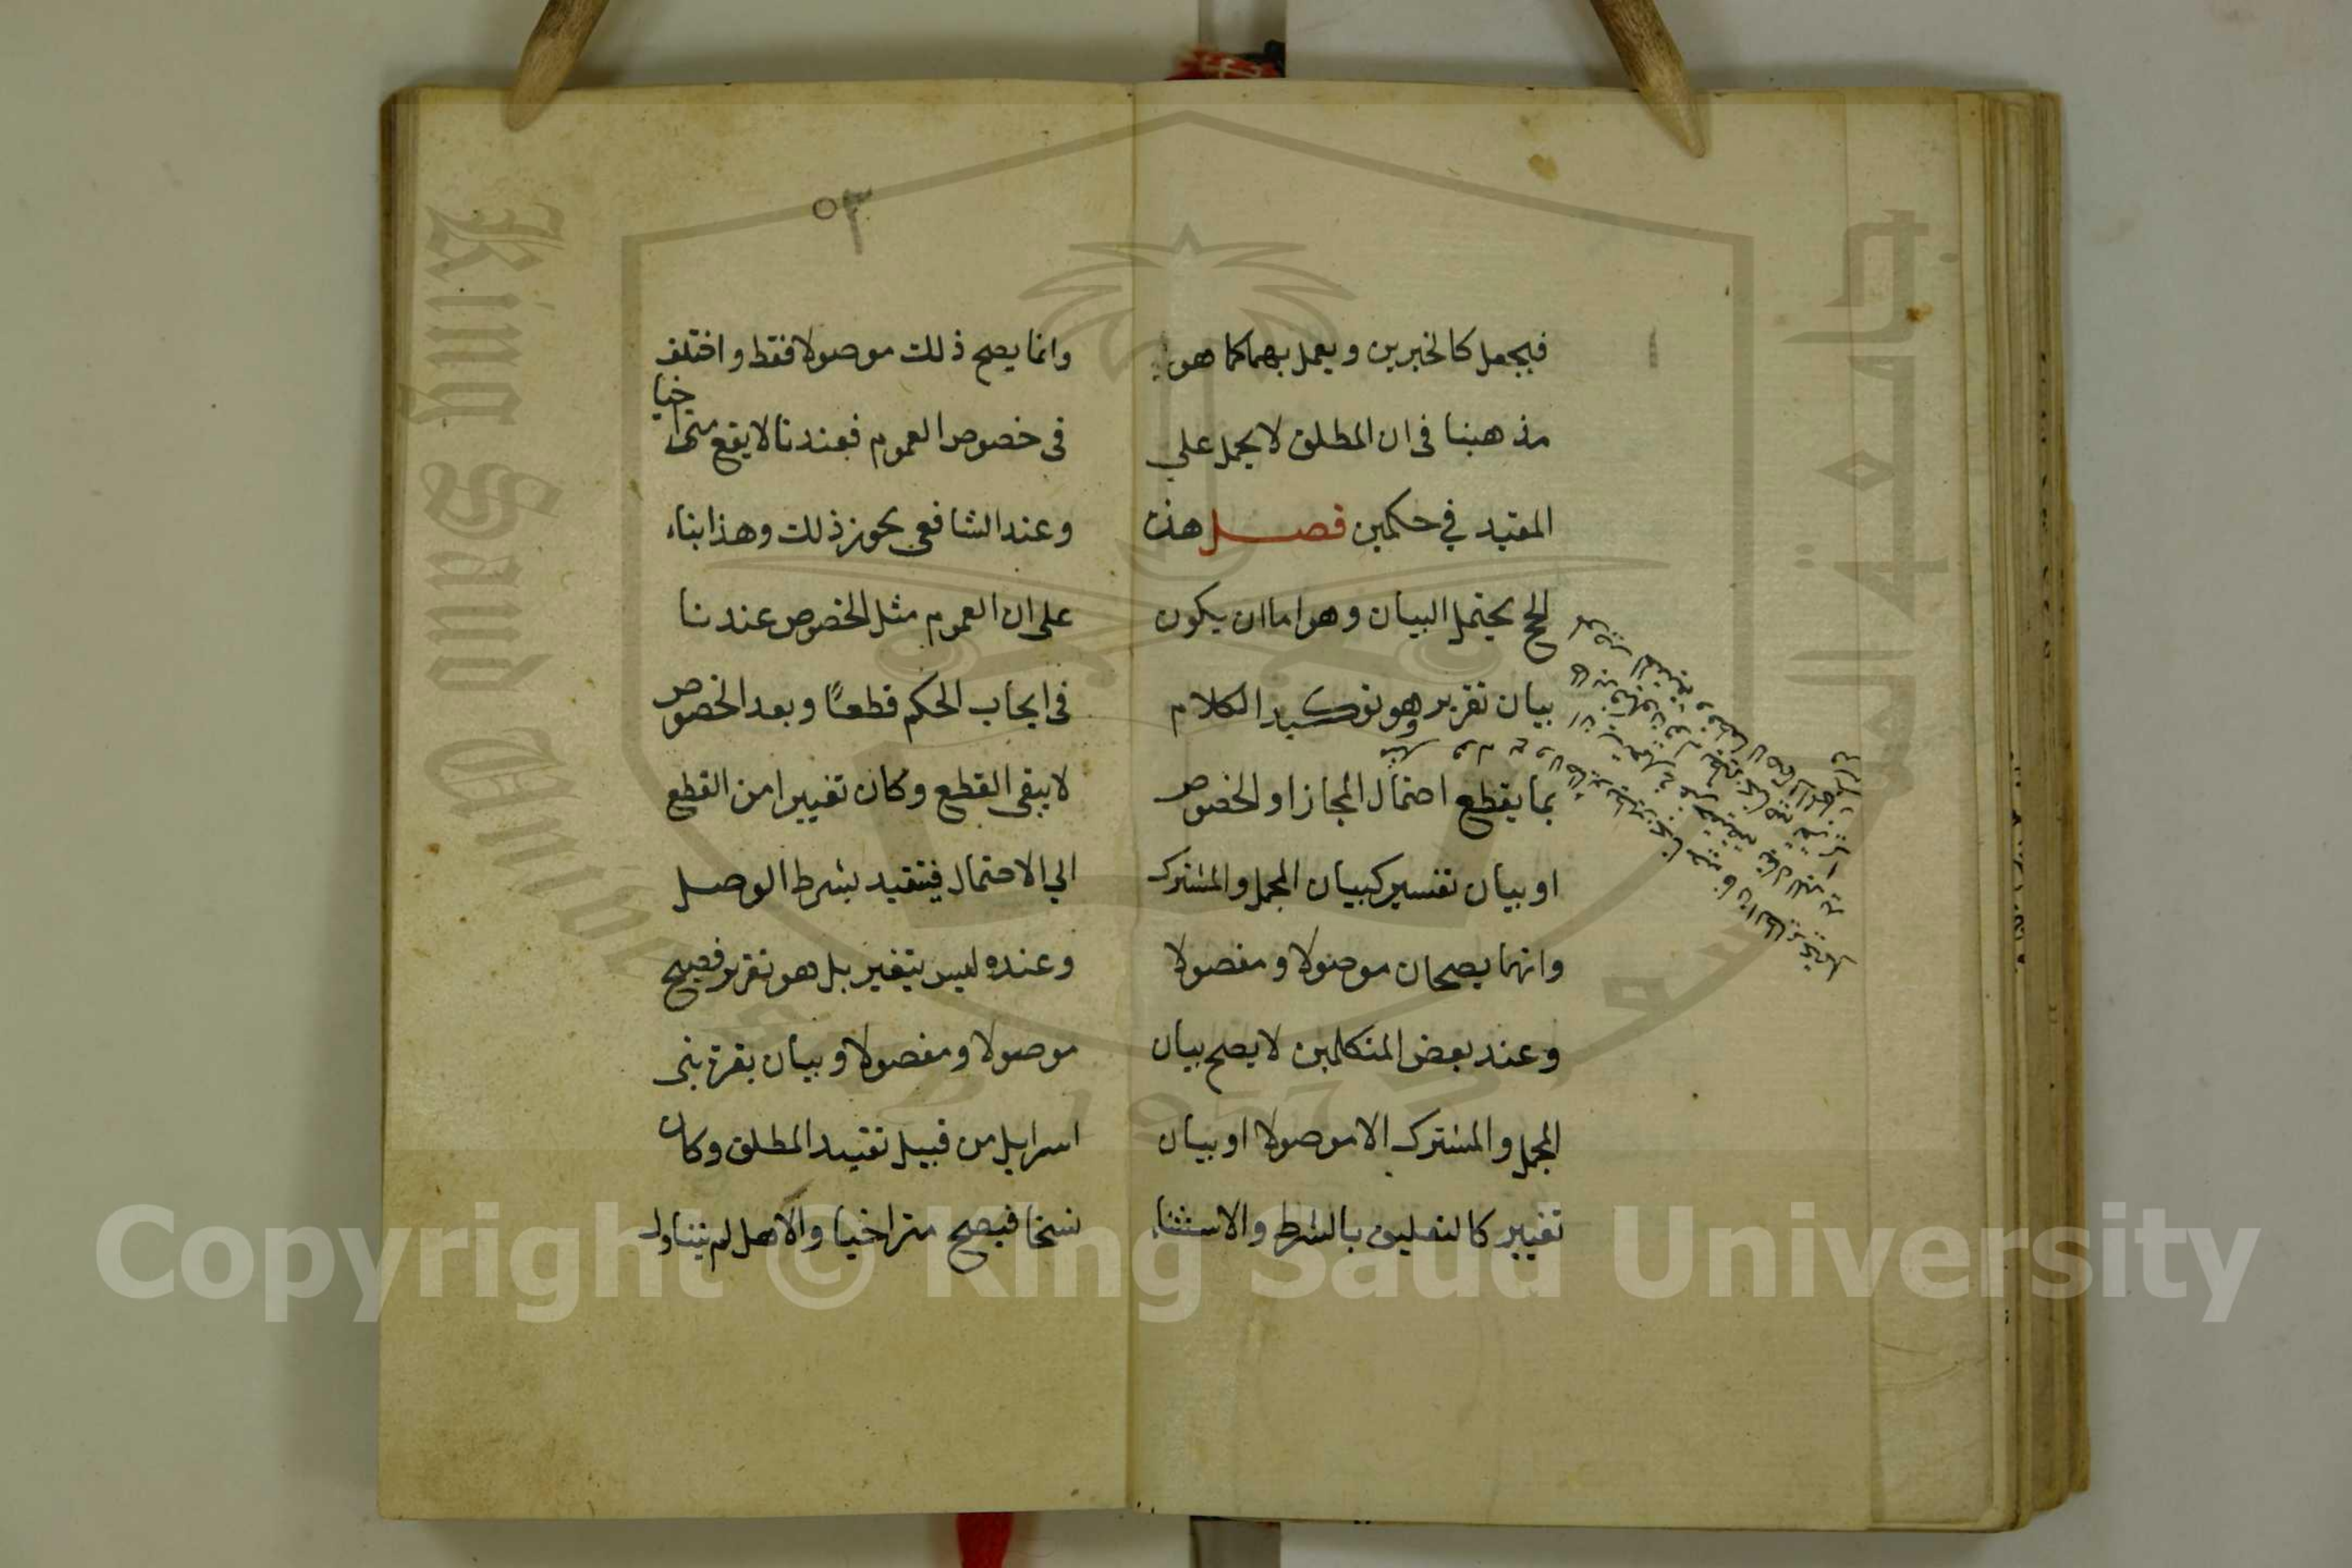 فيجعل كالخبرين ويعمل بهما كما هو
مذهبنا في ان المطلق لا يحمل علي
المقيد في حكمين فصل هذه
الحج يحتمل البيان وهو اما ان يكون
بيان تقرير وهو توكيد الكلام
بما يقطع احتمال المجاز او الخصوص
او بيان تفسير كبيان المجمل والمشترك
وانهما يصحان موصولا و مفصولا
وعند بعض المتكلمين لا يصح بيان
المجمل والمشترك الا موصولا او بيان
تغيير كالتعليق بالشرط والاستثناء
٥٣
وانما يصح ذلك موصولا فقط و اختلف
في خصوص العموم فعندنا لا يقع متراخيا
وعند الشافعي يجوز ذلك وهذا بناء
على ان العموم مثل الخصوص عندنا
في ايجاب الحكم قطعًا وبعد الخصوص
لا يبقى القطع وكان تغييرا من القطع
الي الاحتمال فيتقيد بشرط الوصل
وعنده ليس بتغيير بل هو تقرير فصح
موصولا ومفصولا وبيان بقرة بني
اسرايل من قبيل تقييد المطلق وكان
نسخا فيصح متراخيا والاهل لم يتناول
King Saud University
جامعة الملك سعود
1957
Copyright © King Saud University